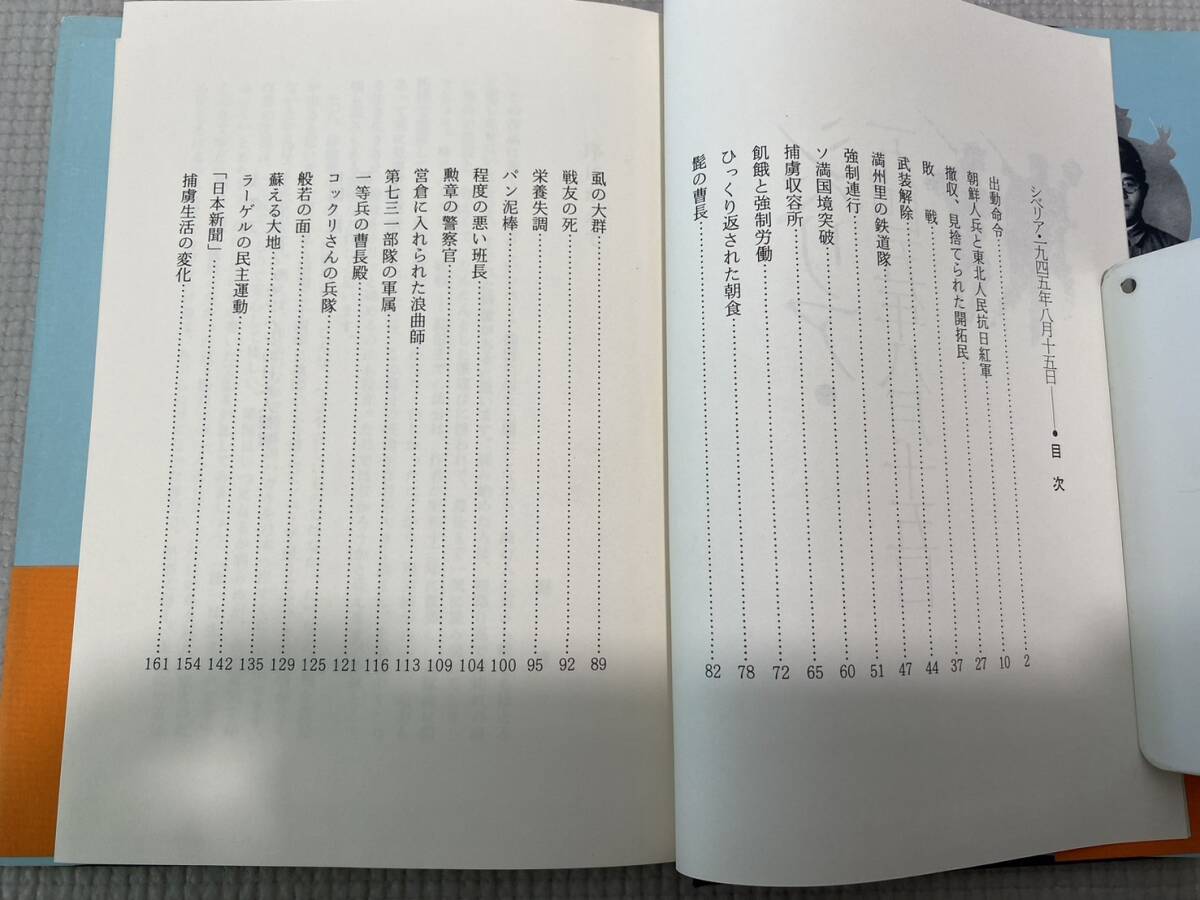 シベリア・一九四五年八月十五日——●目次
出動命令……2
朝鮮人兵と東北人民抗日紅軍……10
撤収、見捨てられた開拓民……27
敗戦……37
武装解除……44
満州里の鉄道隊……47
強制連行……51
ソ満国境突破……60
捕虜収容所……65
飢餓と強制労働……72
ひっくり返された朝食……78
髭の曹長……82
虱の大群……89
戦友の死……92
栄養失調……95
パン泥棒……100
程度の悪い班長……104
勲章の警察官……109
営倉に入れられた浪曲師……113
第七三一部隊の軍属……116
一等兵の曹長殿……121
コックリさんの兵隊……125
般若の面……129
蘇える大地……135
ラーゲルの民主運動……142
「日本新聞」……154
捕虜生活の変化……161